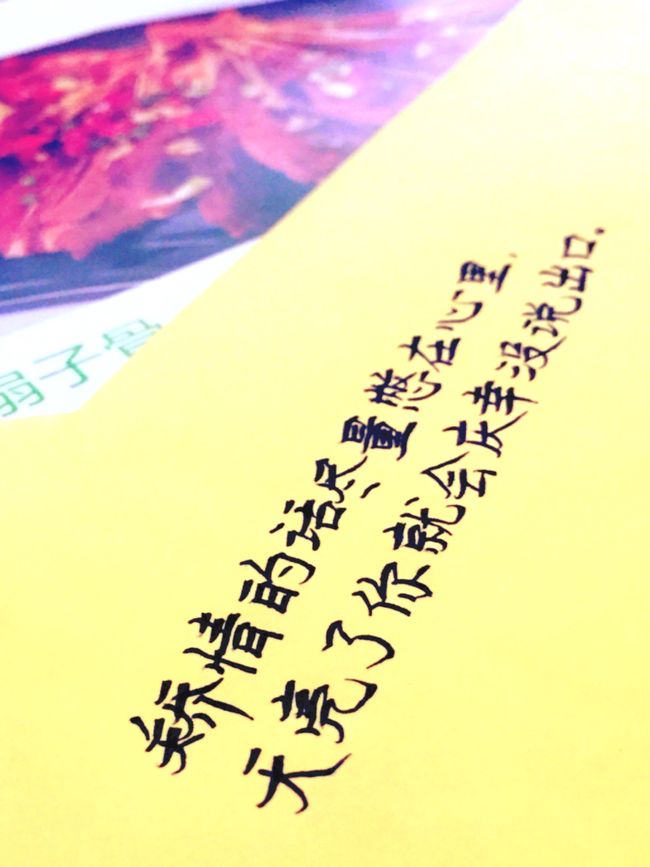 扇子骨
矫情的话尽量憋在心里，
天亮了你就会庆幸没说出口。